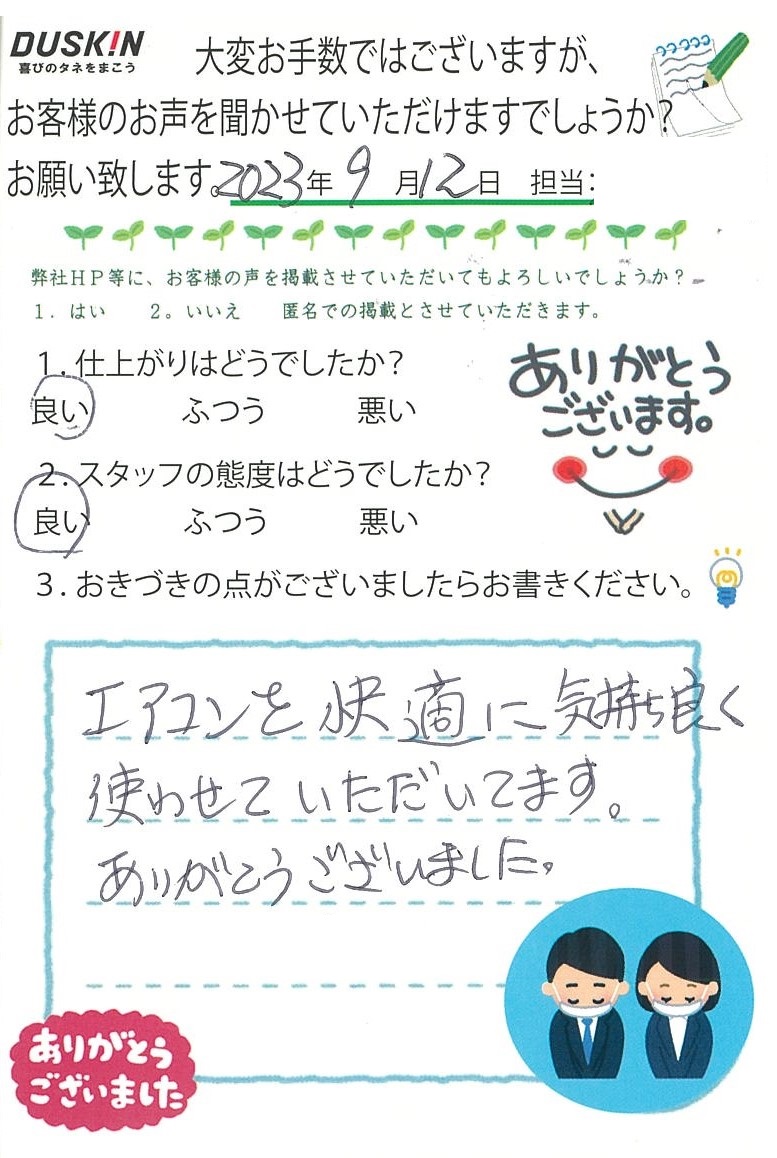 DUSKIN
喜びのタネをまこう
大変お手数ではございますが、
お客様のお声を聞かせていただけますでしょうか?
お願い致します。2023年 9月12日 担当:
弊社HP等に、お客様の声を掲載させていただいてもよろしいでしょうか?
1. はい 2。いいえ 匿名での掲載とさせていただきます。
1.仕上がりはどうでしたか?
良い ふつう 悪い
ありがとう
ございます。
2.スタッフの態度はどうでしたか?
良い ふつう 悪い
3.おきづきの点がございましたらお書きください。
エアコンを快適に気持ち良く
使わせていただいてます。
ありがとうございました。
ありがとう
ございました